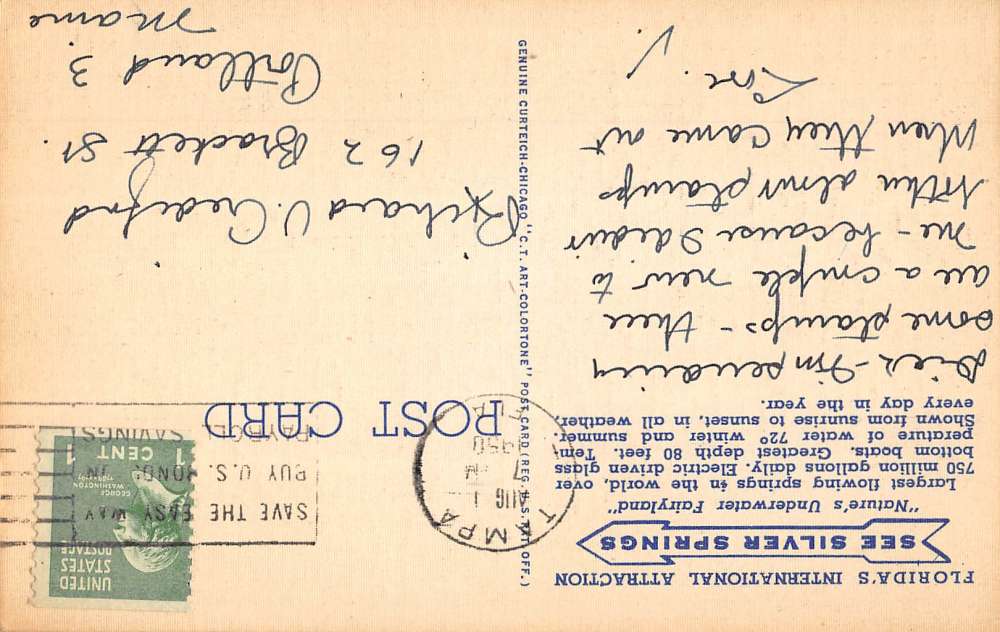 FLORIDA'S INTERNATIONAL ATTRACTION
SEE SILVER SPRINGS
"Nature's Underwater Fairyland"
Largest flowing springs in the world, over
750 million gallons daily. Electric driven glass
bottom boats. Greatest depth 80 feet. Tem-
perature of water 72° winter and summer.
Shown from sunrise to sunset, in all weather,
every day in the year.
I'm sending
some stamps - these
are a couple new to
me - because I didn't
When they came out
Love. V.
GENUINE CURTEICH-CHICAGO "C.T. ART-COLORTONE" POST CARD (REG. U.S. PAT. OFF.)
POST CARD
TAMPA
AUG 1
7
1950
FLA
SAVE THE EASY WAY
BUY U.S. BONDS IN
PAYROLL SAVINGS
UNITED
STATES
POSTAGE
GEORGE
WASHINGTON
1 CENT 1
Richard V.
162 Brackett St.
Portland 3.
Maine